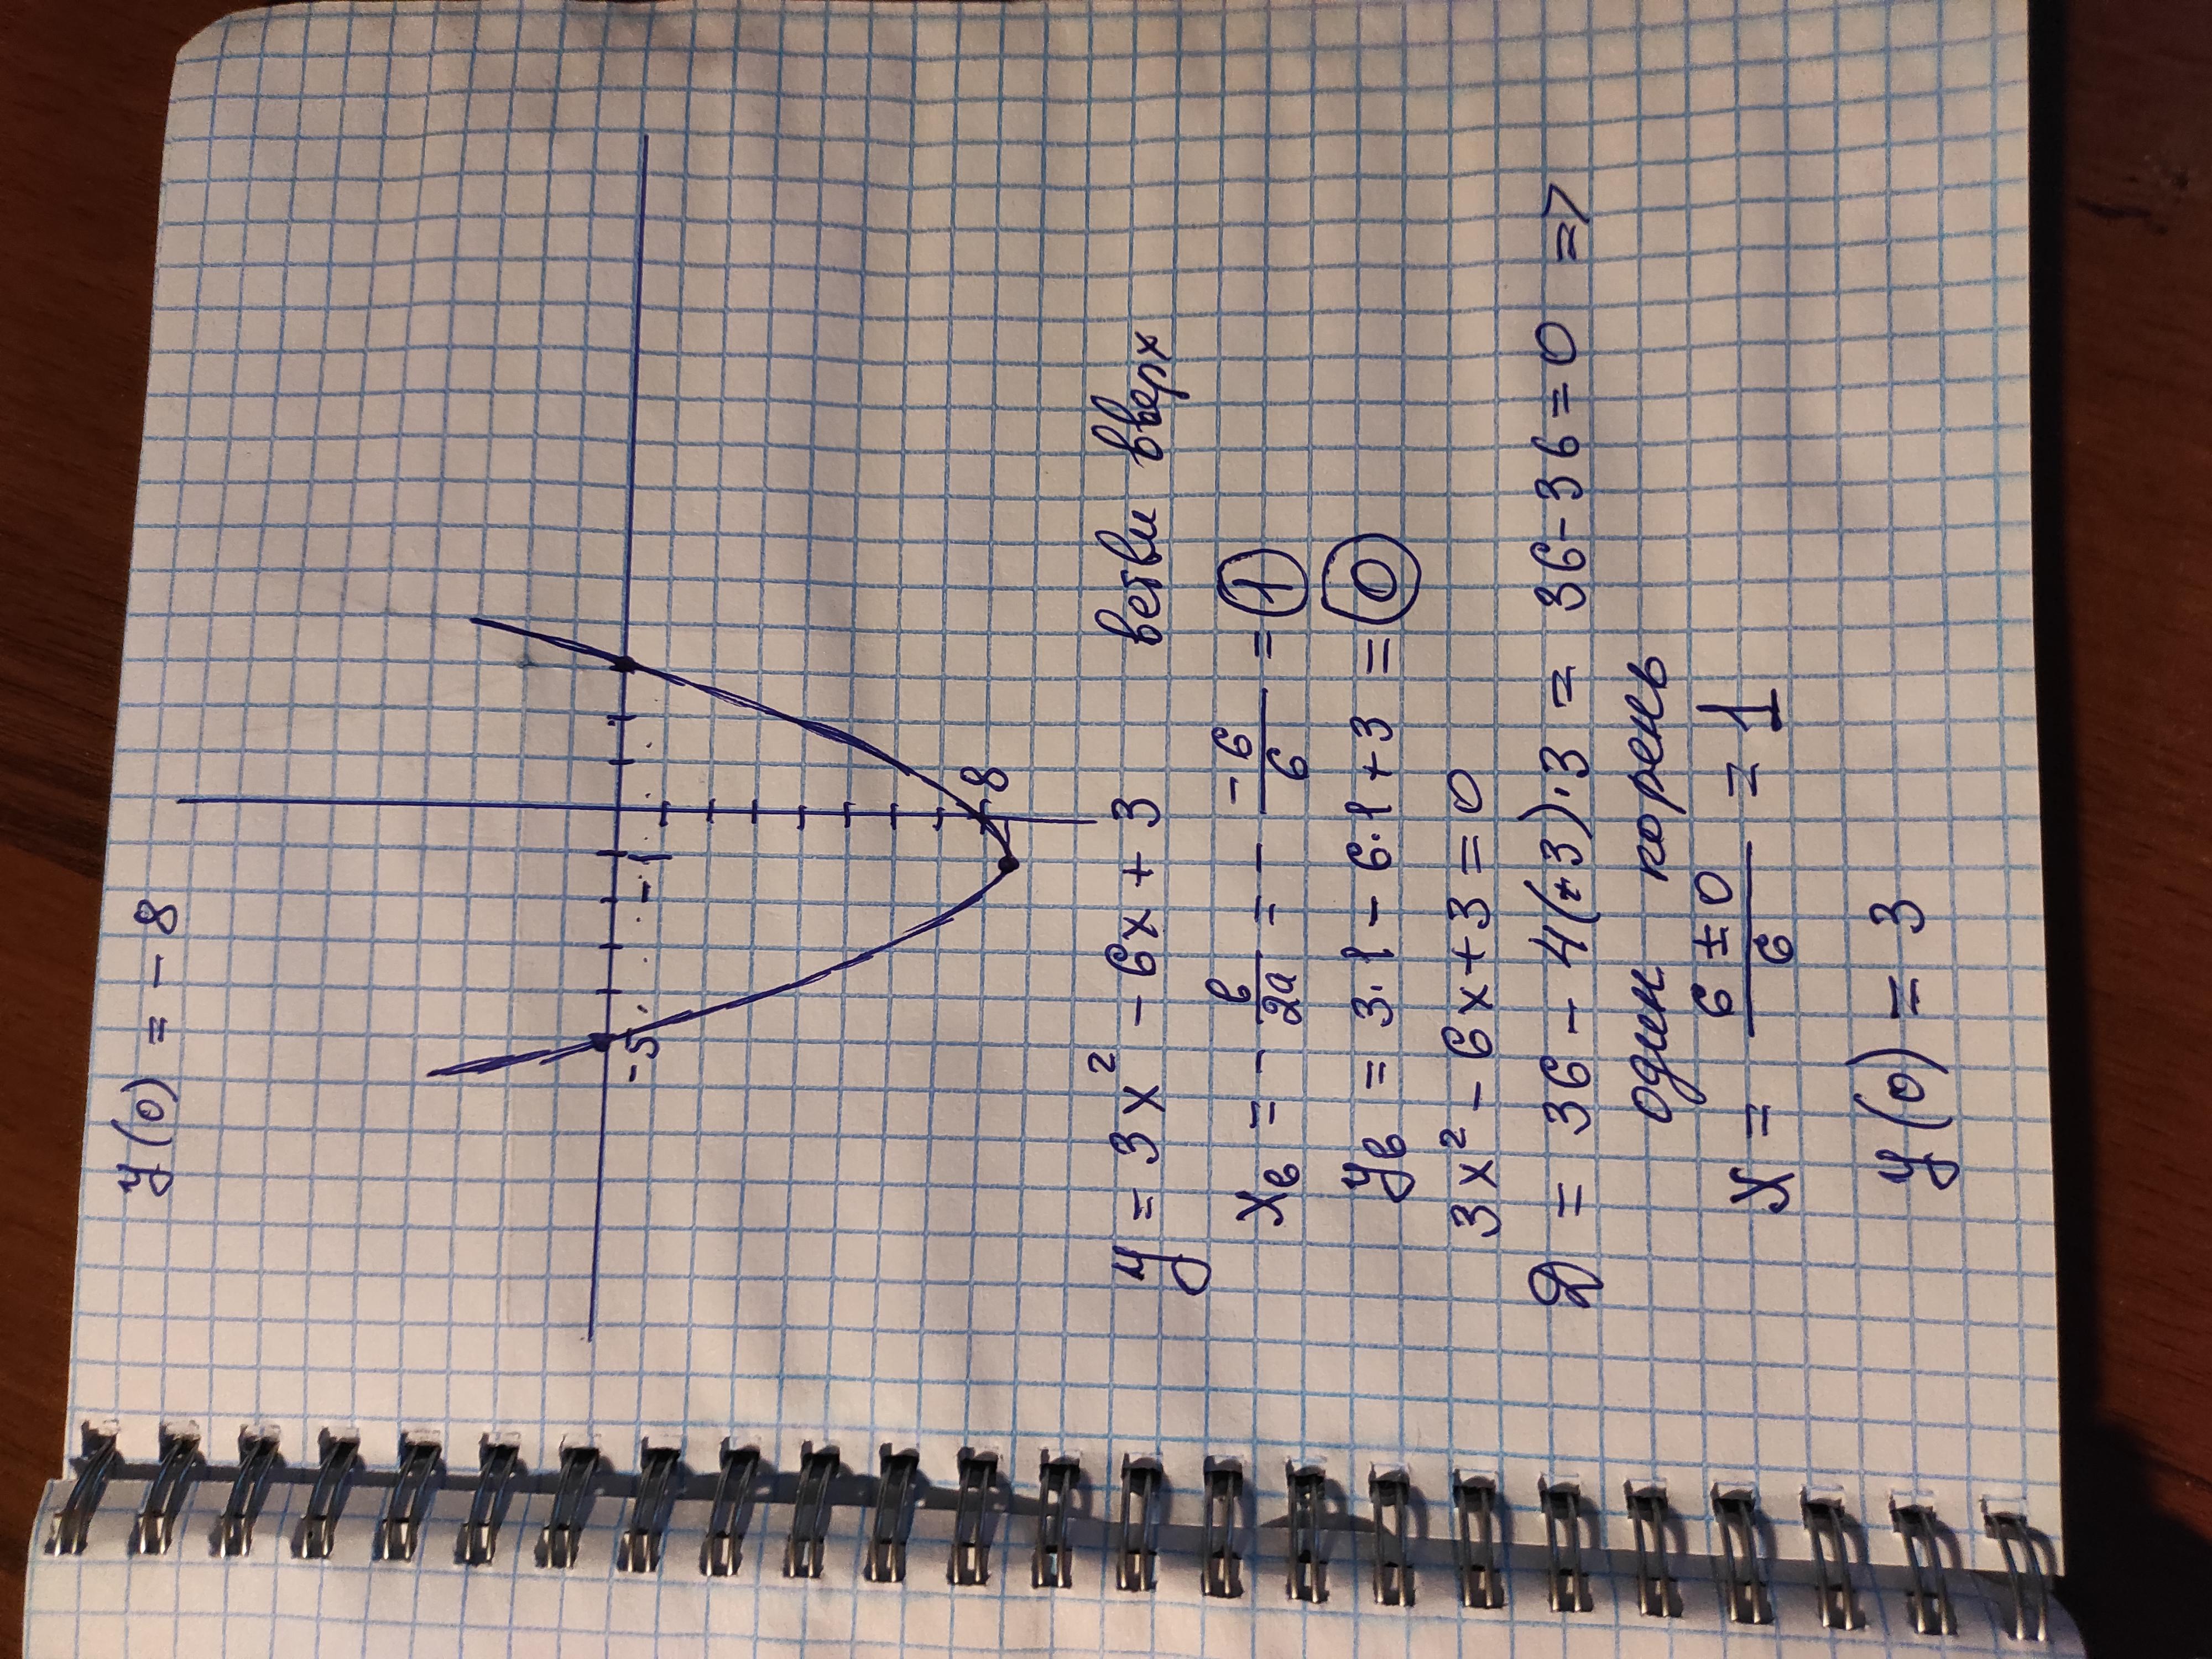 y(0) = -8
-5
-1
8
y = 3x² - 6x + 3 ветви вверх
xв = - в/2a = - -6/6 = 1
yв = 3·1 - 6·1 + 3 = 0
3x² - 6x + 3 = 0
D = 36 - 4(+3)·3 = 36 - 36 = 0 =>
один корень
x = 6 ± 0 / 6 = 1
y(0) = 3